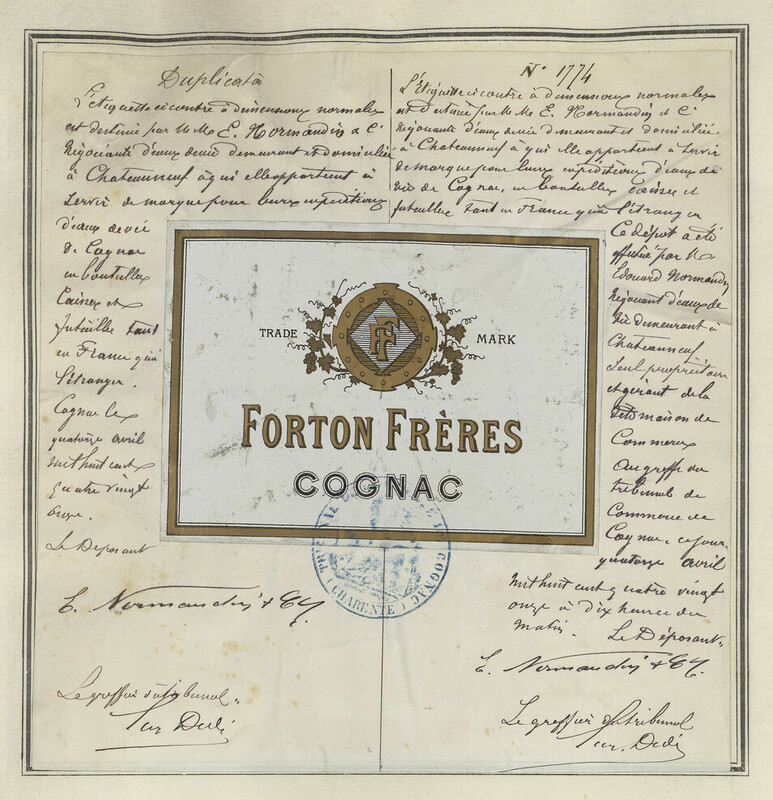 Duplicata
L'étiquette ci contre à dimensions normales
est destinée par M Mo E. Normandin & Cie
Négociants d'eaux devie demeurant et domiciliés
à Chateauneuf à qui elle appartient à
servir de marque pour leurs expéditions
d'eaux devie
de Cognac
en bouteilles
Caisses et
futaille tant
en France qu'en
l'étranger.
Cognac le
quatorze avril
mil huit cent
quatre vingt
onze.
Le Déposant
E. Normandin & Cie
Le greffier du tribunal
N° 1774
L'Etiquette ci contre à dimensions normales
est destinée par M Mo E. Normandin et Cie
Négociants d'eaux devie demeurant et domiciliés
à Chateauneuf à qui elle appartient à servir
de marque pour leurs expéditions d'eaux de
vie de Cognac, en bouteilles caisses et
futailles tant en France qu'en l'étranger
Ce dépôt a été
effectué par M
Edouard Normandin
Négociant d'eaux de
vie demeurant à
Chateauneuf
Seul propriétaire
et gérant de la
dite maison de
Commerce
Au greffe du
tribunal de
Commerce de
Cognac, ce jour
quatorze avril
mil huit cent quatre vingt
onze à dix heures du
matin.
Le Déposant
E. Normandin & Cie
Le greffier du tribunal
TRADE MARK
FF
FORTON FRÈRES
COGNAC
COGNAC
(CHARENTE)